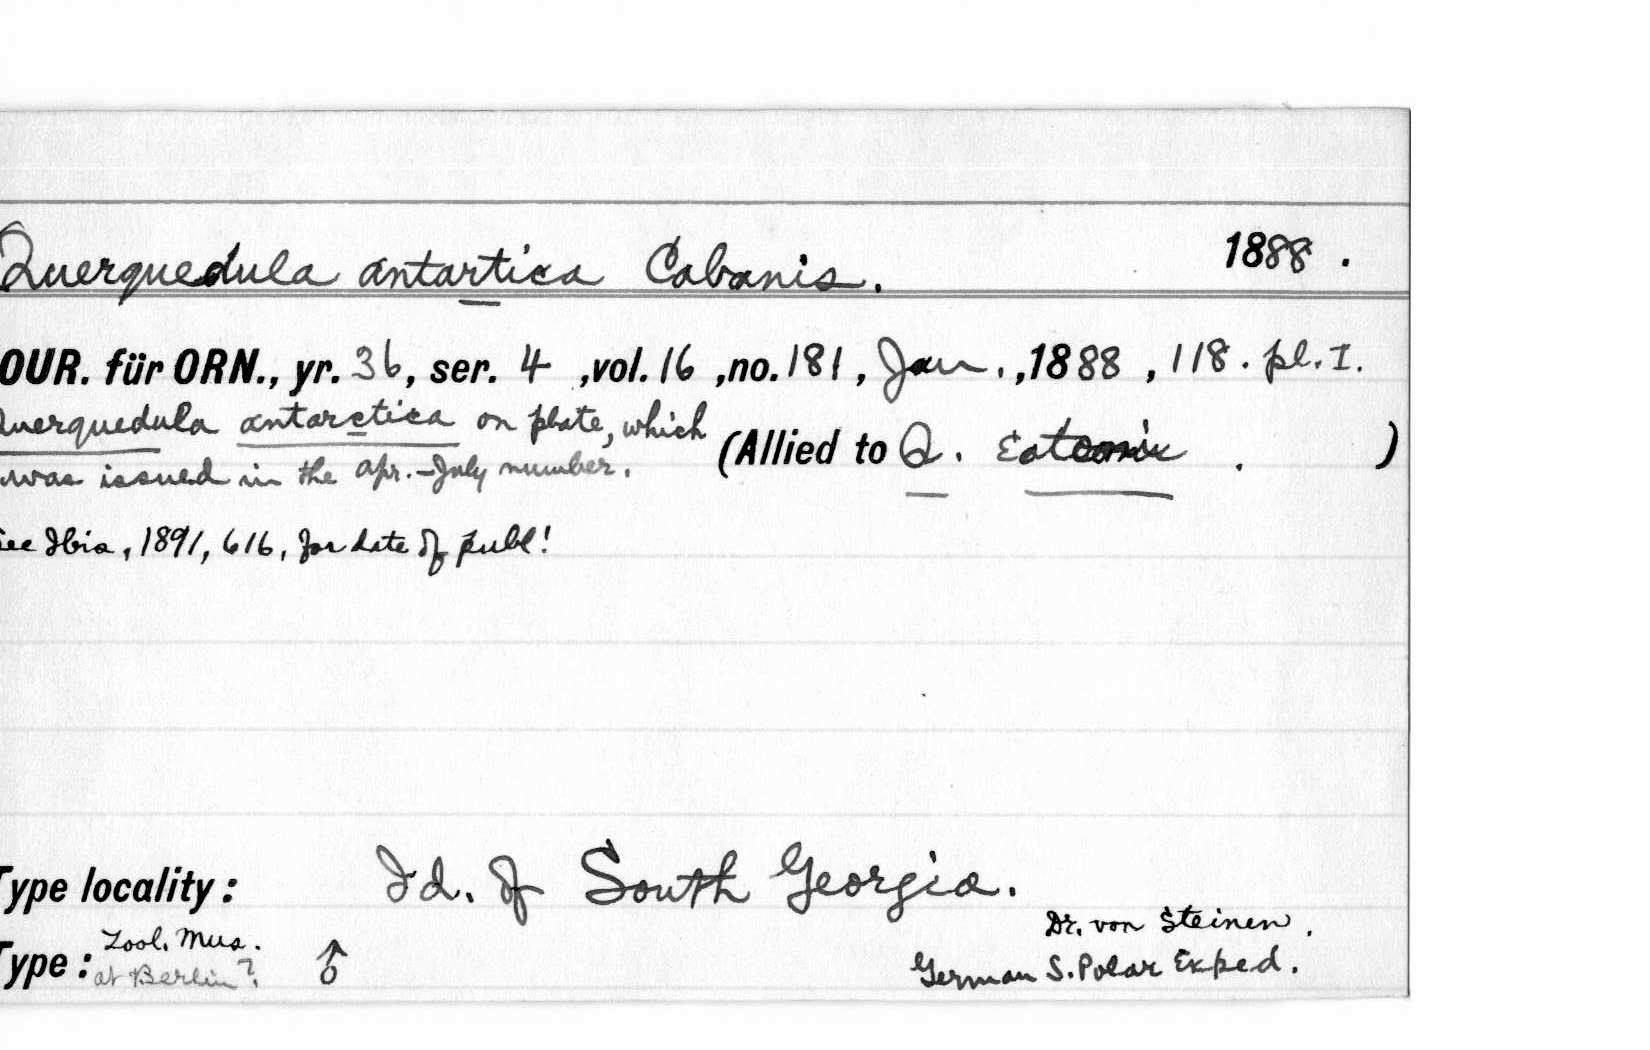 Querquedula antartica Cabanis. 1888.
OUR. für ORN., yr. 36, ser. 4, vol. 16, no. 181, Jan., 1888, 118. pl. I.
Querquedula antarctica on plate, which
was issued in the Apr.-July number. (Allied to Q. Eatoni.)
See Ibis, 1891, 616, for date of publ!
Type locality: Id. of South Georgia.
Dr. von Steinen.
Type: Zool. Mus. at Berlin? ♂ German S. Polar Exped.